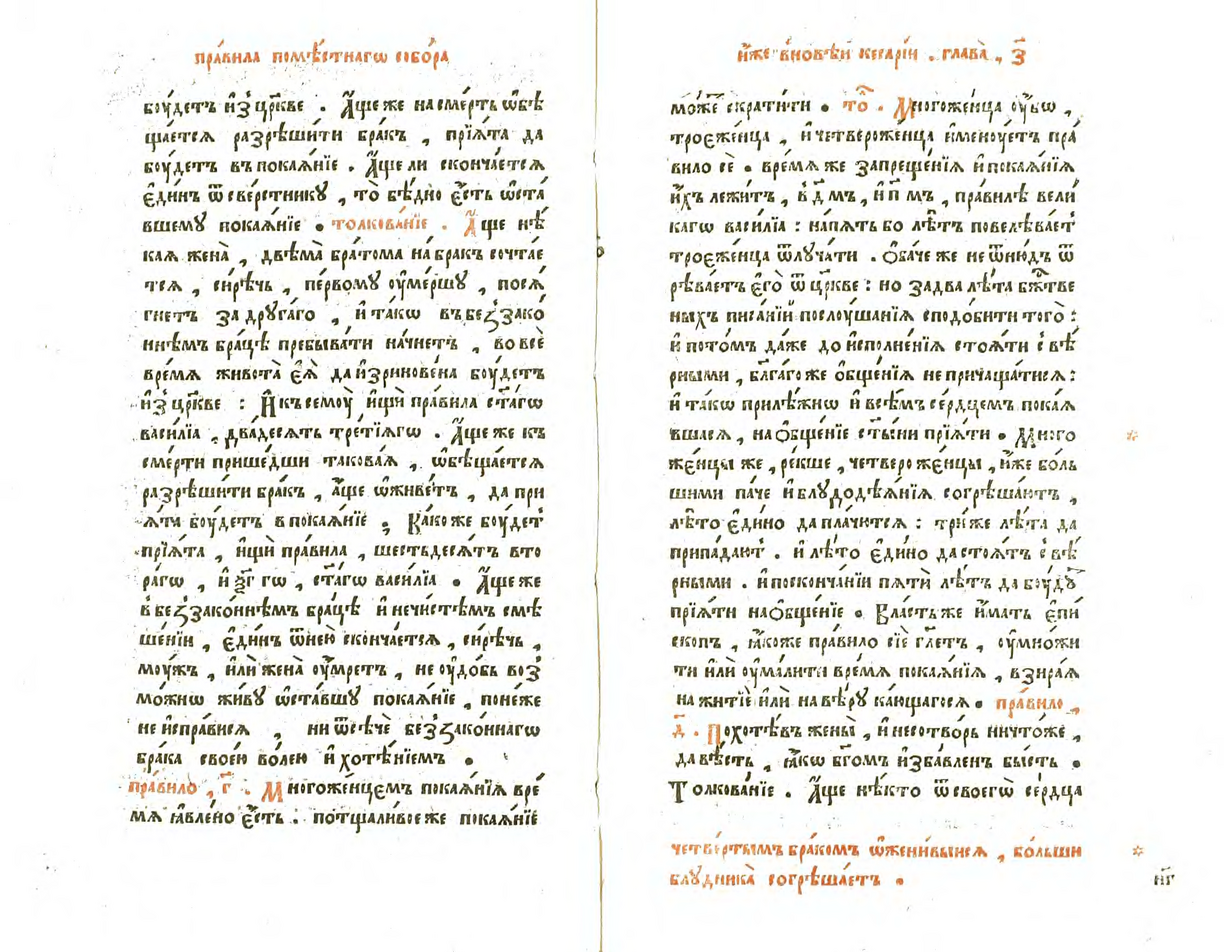 пра́вила помѣ́стнагѡ собо́ра
боу́детъ и҆з̾ цр҃кве . А҆́ще же на сме́рть ѡ҆бѣ
ща́ется разрѣши́ти бра́къ , прїѧ́та да
боу́детъ въ покаѧ́нїе . А҆́ще ли сконча́етсѧ
є҆ди́нъ ѿ све́рстникꙋ , то̀ бѣ́дно є҆́сть ѡ҆ста́
вшемꙋ покаѧ́нїе . толкова́нїе . А҆́ще нѣ́
каѧ жена̀ , двѣма̀ бра́тома на бра́къ сочтае
тсѧ , си́рѣчь , пе́рвомꙋ оу҆ме́ршꙋ , посѧ́
гнетъ за дрꙋга́го , и҆ та́кѡ въ безᲁзако́
ннѣмъ бра́цѣ пребыва́ти на́чнетъ , во всѐ
вре́мѧ живота̀ є҆ѧ̀ да и҆зринове́на боу́детъ
и҆з̾ цр҃кве : И҆ къ семоу̀ и҆щѝ пра́вила ст҃а́гѡ
васи́лїа , два́десѧть тре́тїѧгѡ . А҆́ще же къ
сме́рти прише́дши такова́ѧ , ѡ҆бѣща́етсѧ
разрѣши́ти бра́къ , а҆́ще ѡ҆живе́тъ , да при
ѧ́та боу́детъ в покаѧ́нїе , Ка́ко же боу́дет̾
прїѧ́та , и҆щѝ пра́вила , шестьдесѧ́тъ вто
ра́гѡ , и҆ ѯ҃г гѡ , ст҃а́гѡ васи́лїа . А҆́ще же
в̾ беззако́ннѣмъ бра́цѣ и҆ нечи́стѣмъ смѣ
ше́нїи , є҆ди́нъ ѿ нею̀ сконча́етсѧ , си́рѣчь ,
моу́жъ , и҆лѝ жена̀ оу҆́мретъ , не оу҆до́бь воз̾
мо́жнѡ жи́вꙋ ѡ҆ста́вшꙋ покаѧ́нїе , поне́же
не и҆спра́висѧ , ни ѿсѣ́че беззако́ннагѡ
бра́ка свое́ю во́лею и҆ хотѣ́нїемъ .
пра́вило , г҃ . Многоже́нцемъ покаѧ́нїѧ вре́
мѧ ꙗ҆вле́но є҆́сть . потщали́вое же покаѧ́нїе
и҆́же в̾ новѣ́й кесарі́и . глава̀ , з҃
мо́же сократи́ти . то̑ . Многоже́нца оу҆́бѡ ,
троеже́нца , и҆ четвероже́нца и҆меноу́етъ пра́
вило сѐ . вре́мѧ же запреще́нїѧ и҆ покаѧ́нїѧ
и҆́хъ лежи́тъ , в̾ д҃ мъ , и҆ п҃ мъ , пра́вилѣ вели́
кагѡ васи́лїа : на пѧ́ть бо лѣ́тъ повелѣва́ет̾
троеже́нца ѿлꙋча́ти . Ѻ҆ба́че же не ѿню́дъ ѿ
рѣва́етъ є҆го̀ ѿ цр҃кве : но за два̀ лѣ́та бж҃тве
ныхъ писа́нїй послоу́шанїѧ сподо́бити того̀ :
и҆ пото́мъ да́же до и҆сполне́нїѧ стоѧ́ти с̾ вѣ́
рными , бл҃га́го же ѻ҆бще́нїѧ не причаща́тисѧ :
и҆ та́кѡ прилѣ́жнѡ и҆ всѣ́мъ се́рдцемъ покаѧ́
вшасѧ , на ѻ҆бще́нїе ст҃ы́ни прїѧ́ти . Много
же́нцы же , ре́кше , четвероже́нцы , и҆́же бо́ль
шими па́че и҆ блꙋдодѣѧ́нїѧ согрѣша́ютъ ,
лѣ́то є҆ди́но да пла́чутсѧ : три́ же лѣ́та да
припа́даютъ . и҆ лѣ́то є҆ди́но да стоѧ́тъ с̾ вѣ́
рными . и҆ по сконча́нїи пѧтѝ лѣ́тъ да боу́дꙋ
прїѧ́ти на ѻ҆бще́нїе . Вла́сть же и҆́мать є҆пи́
скопъ , ꙗ҆́коже пра́вило сїѐ гл҃етъ , оу҆мно́жи
ти и҆лѝ оу҆ма́лити вре́мѧ покаѧ́нїѧ , взира́ѧ
на житїѐ и҆лѝ на вѣ́рꙋ ка́ющагосѧ . пра́вило ,
д҃ . Похотѣ́въ жены̀ , и҆ не сотво́рь ничто́же ,
да вѣ́сть , ꙗ҆́кѡ бг҃омъ и҆зба́вленъ бы́сть .
Толкова́нїе . А҆́ще нѣ́кто ѿ своегѡ̀ се́рдца
четве́ртымъ бра́комъ ѡ҆жени́выисѧ , бо́льши
блꙋдника̀ согрѣша́етъ .
н҃г